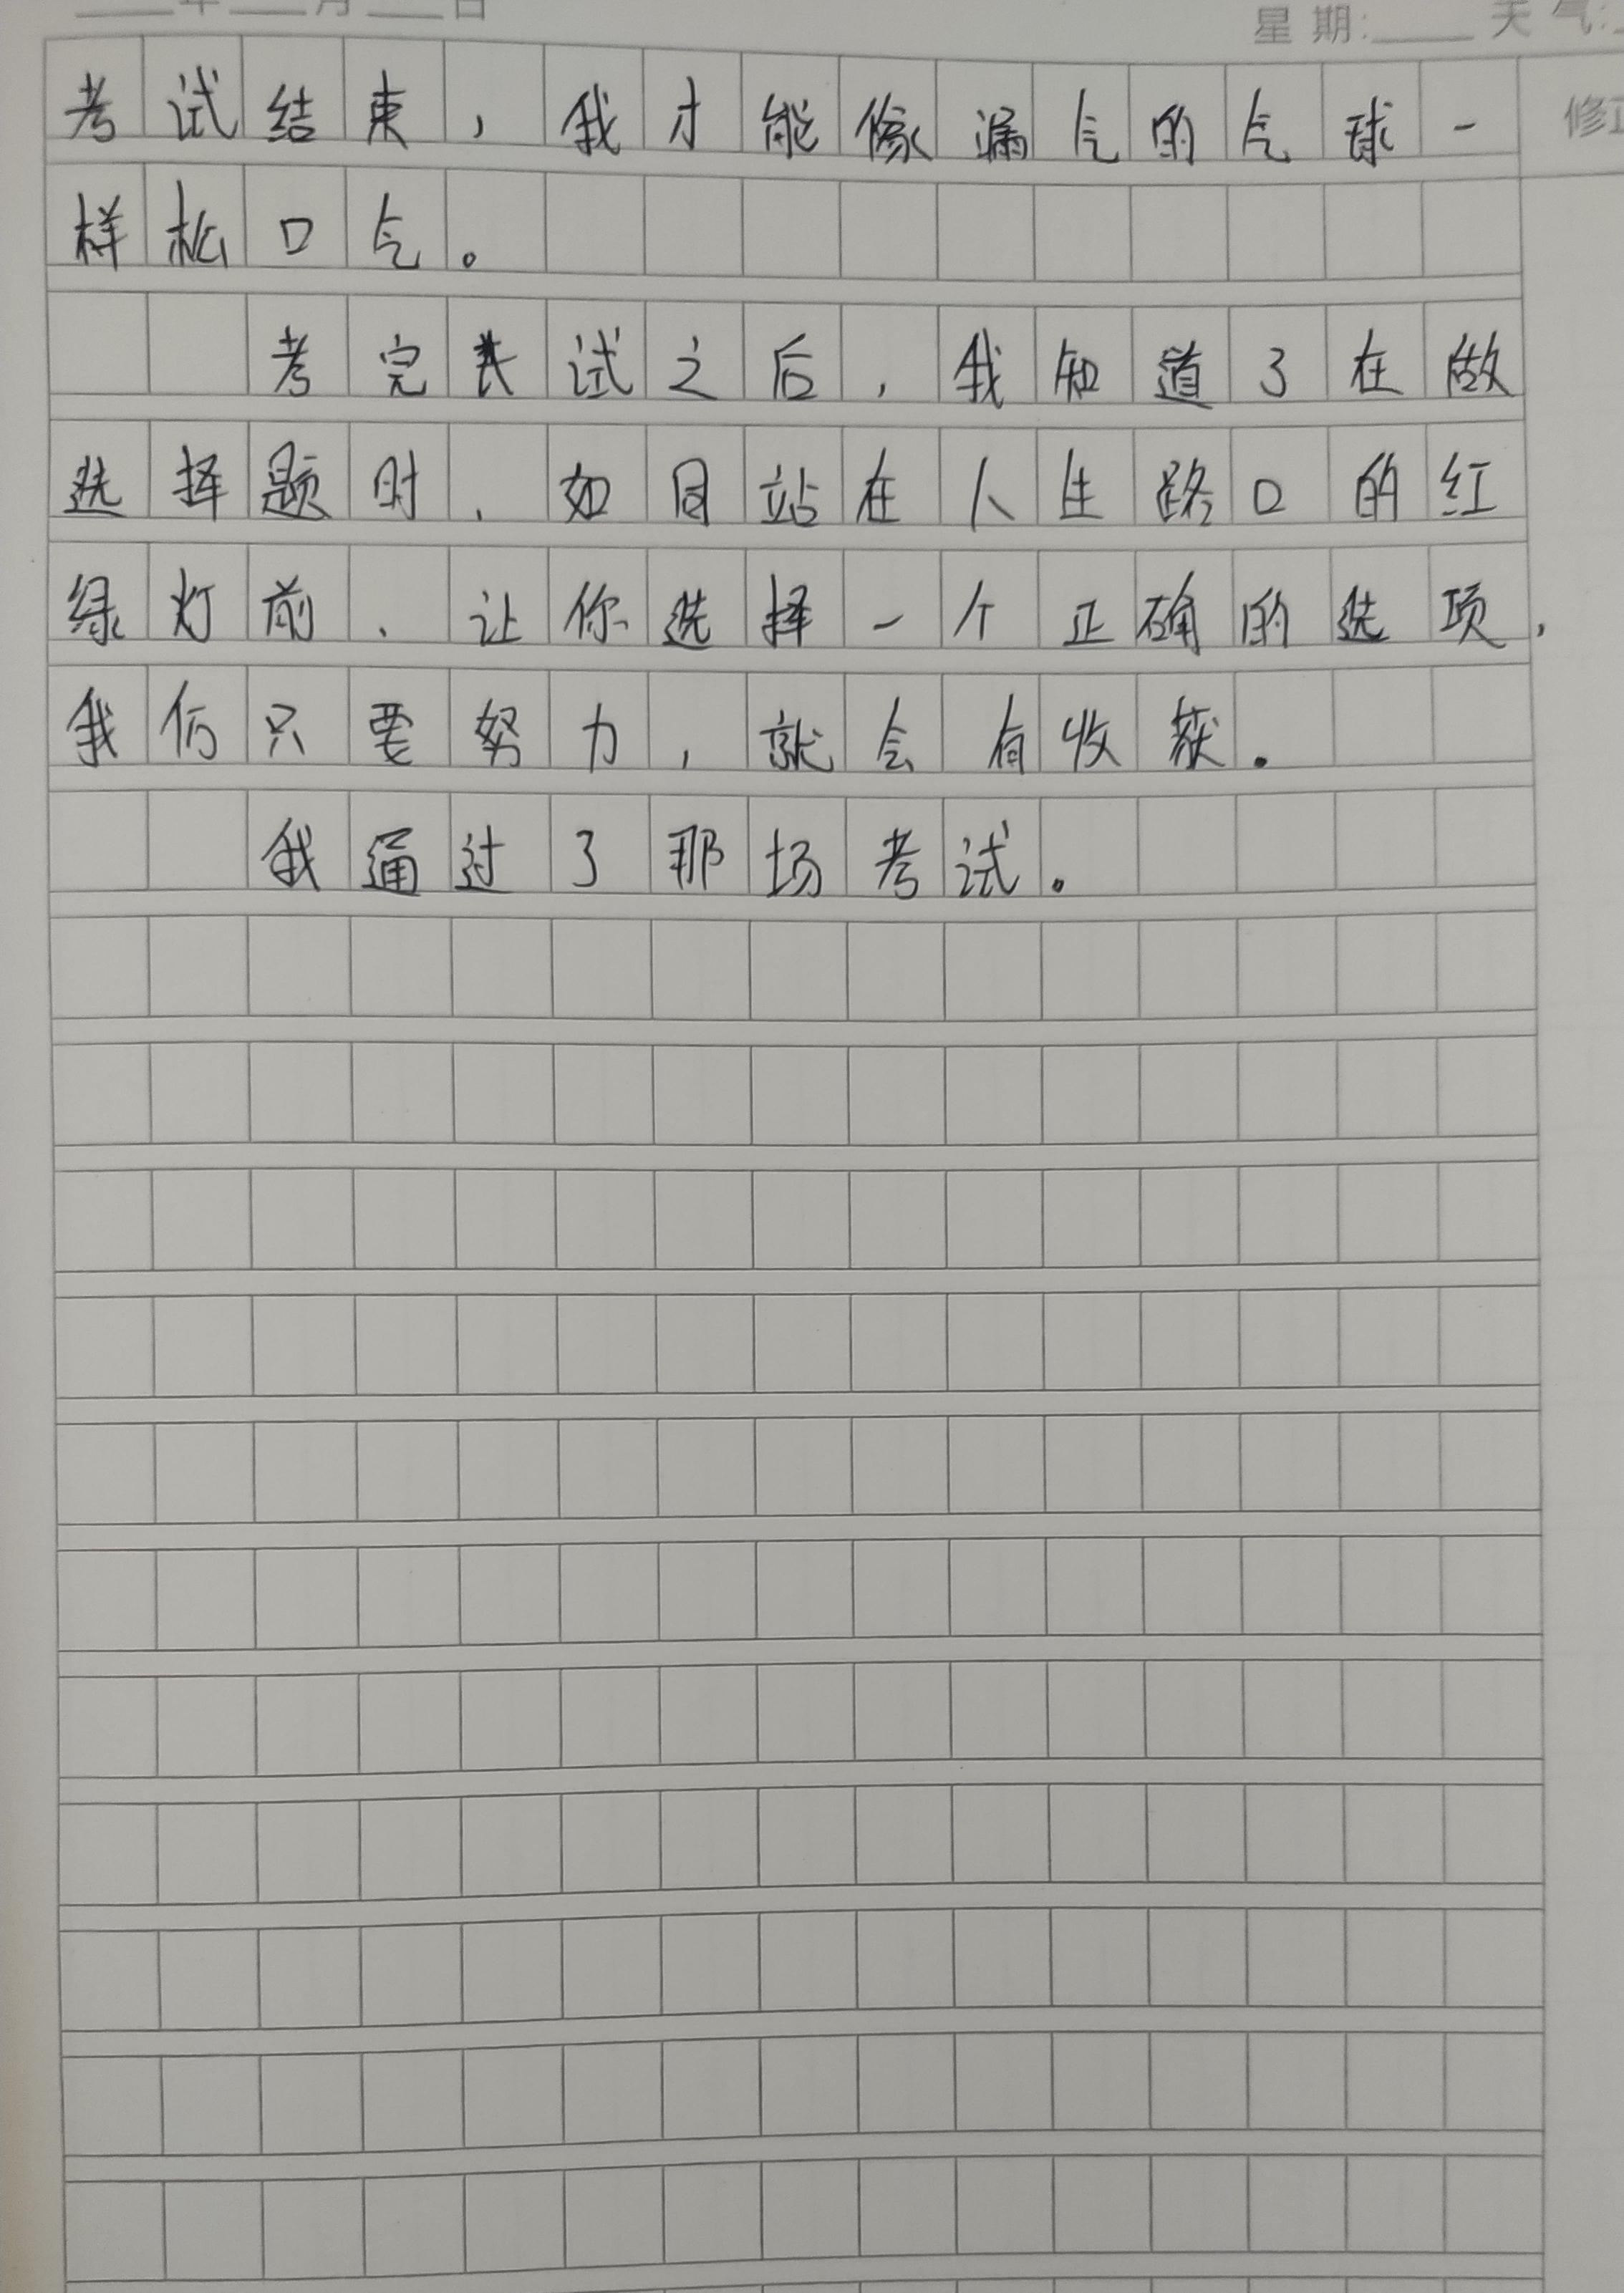 年 月 日
星期: 天气:
修正
考试结束，我才能像漏气的气球一
样松口气。
考完试之后，我知道了在做
选择题时，如同站在人生路口的红
绿灯前，让你选择一个正确的选项，
我们只要努力，就会有收获。
我通过了那场考试。